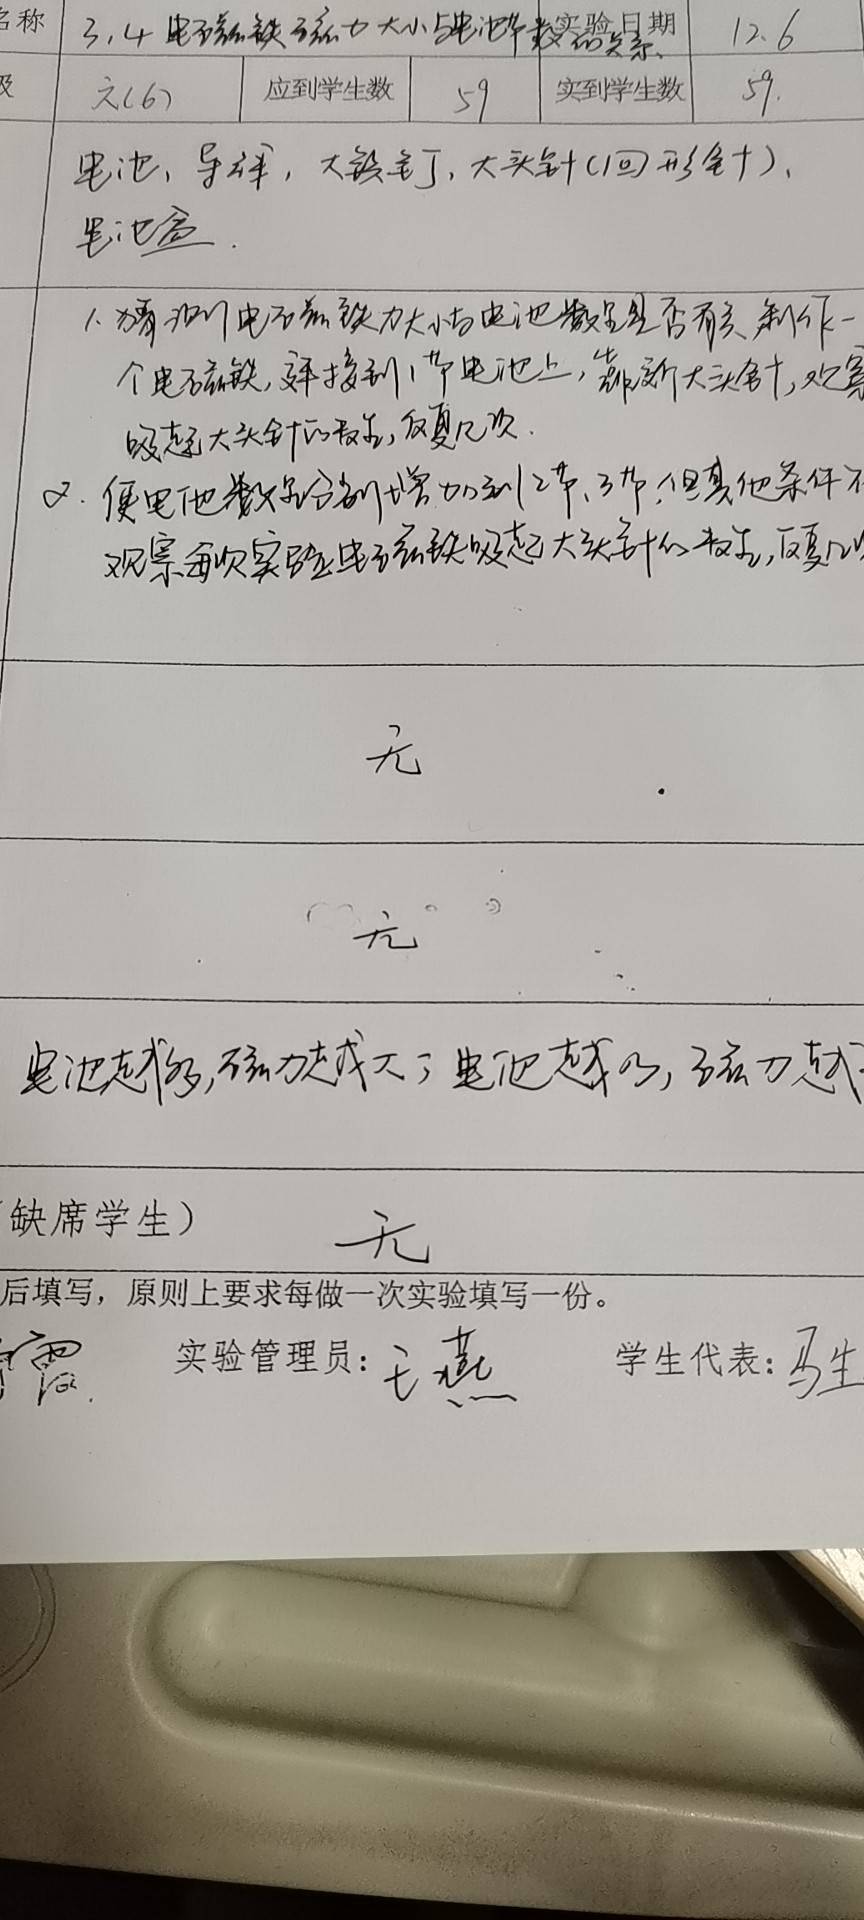 名称 3.4 电磁铁磁力大小与电池节数的关系. 实验日期 12.6
级 六(6) 应到学生数 59 实到学生数 59.
电池、导线，大铁钉，大头针(回形针)、
电池盒.
1. 猜测电磁铁力大小与电池数量是否有关，制作一
个电磁铁，连接到1节电池上，靠近大头针，观察
吸起大头针的数量，反复几次.
2. 使电池数量分别增加到2节、3节，但其他条件不
观察每次实验电磁铁吸起大头针的数量，反复几次
无
无
电池越多，磁力越大；电池越少，磁力越
（缺席学生） 无
后填写，原则上要求每做一次实验填写一份。
霞. 实验管理员：王燕 学生代表：马生